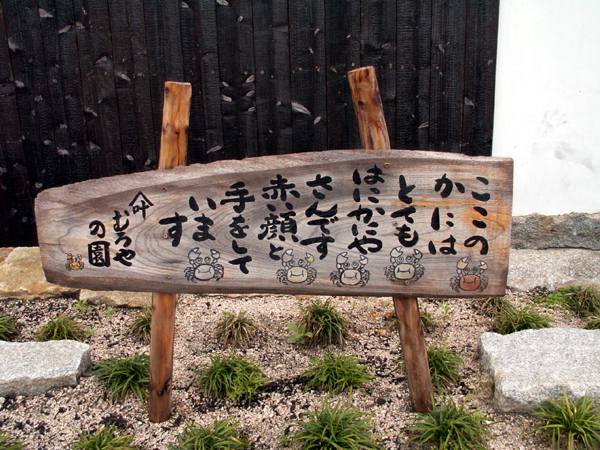 ここの
かには
とても
はにかいや
さんです
赤い顔と
手をして
いま
す
むろや
の園